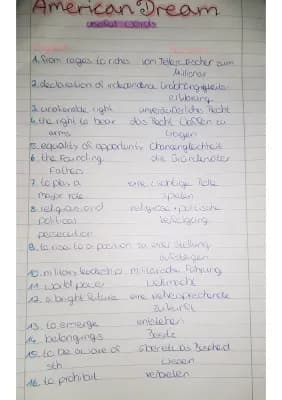 American Dream
useful words
1. from rages to riches vom Tellerwäscher zum
Millionär
2. declaration of independence Unabhängigkeits-
erklärung
3. unalienable right unveräußerliches Recht
4. the right to bear das Recht Waffen zu
arms tragen
5. equality of opportunity Chancengleichheit
6. the Founding die Gründerväter
Fathers
7. to play a eine wichtige Rolle
major role spielen
8. religious and religiöse + politische
political Verfolgung
persecution
9. to rise to a position zu einer Stellung
aufsteigen
10. military leadership militärische Führung
11. world power Weltmacht
12. a bright future eine vielversprechende
Zukunft
13. to emerge entstehen
14. belongings Besitz
15. to be aware of über etwas Bescheid
sth wissen
16. to prohibit verbieten